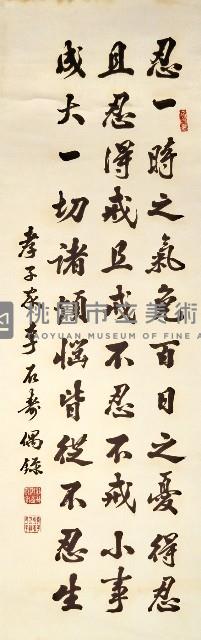 忍一時之氣免百日之憂得忍
且忍得戒且戒不忍不戒小事
成大一切諸煩惱皆從不忍生
孝子家 石壽偶錄
桃園市立美術館
TAOYUAN MUSEUM OF FINE